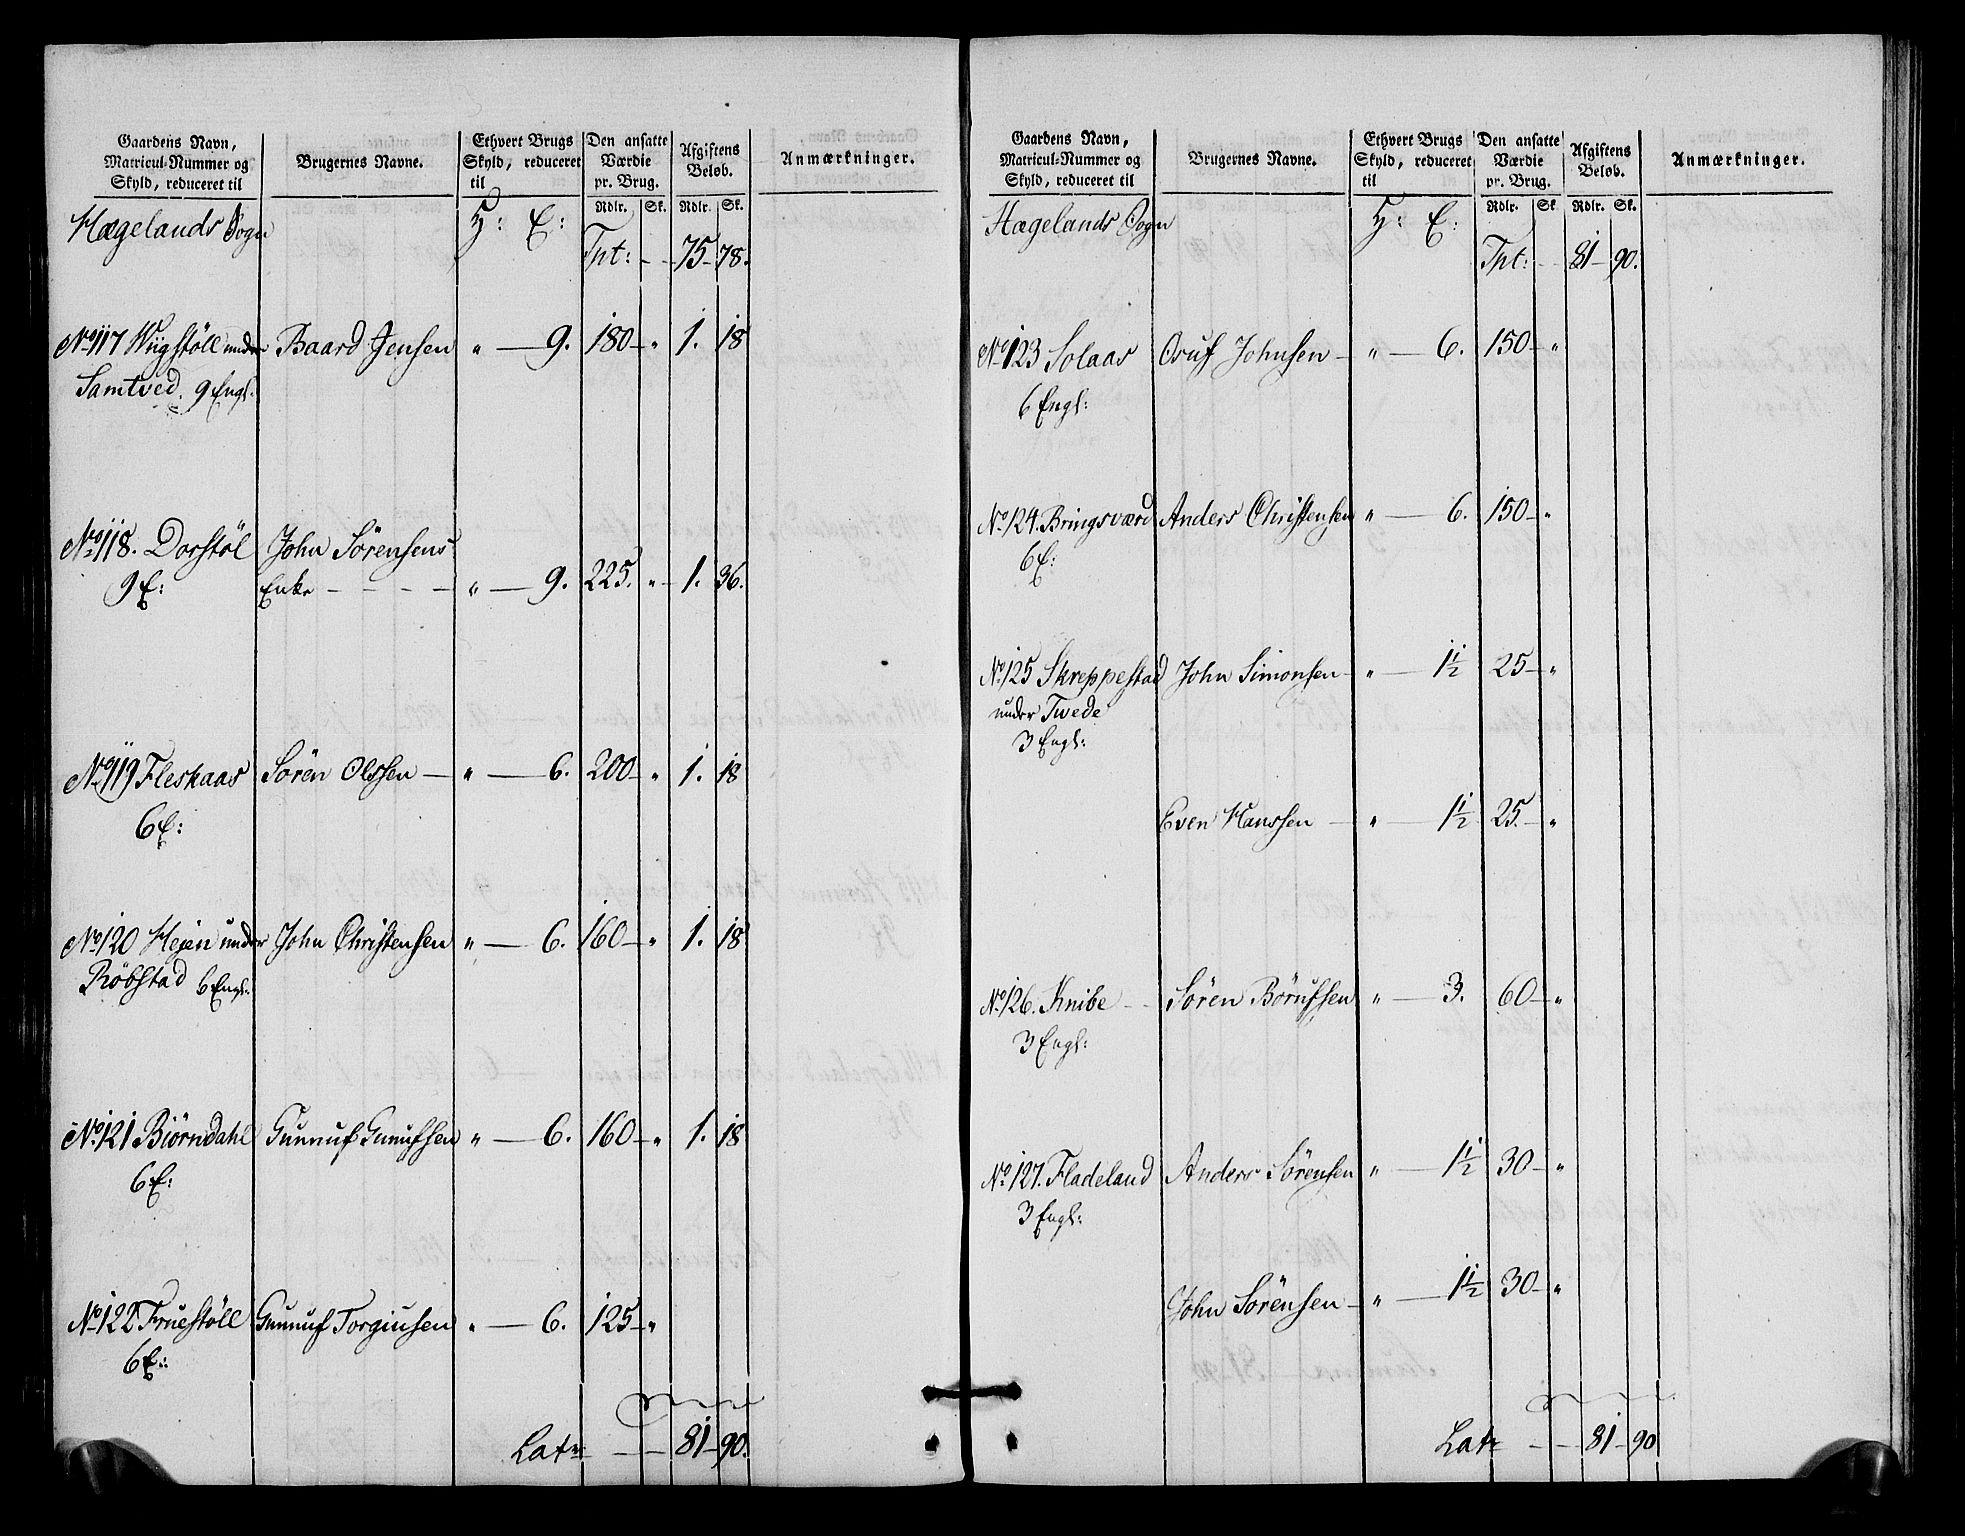 Gaardens Navn,
Matricul-Nummer og
Skyld, reduceret til
Brugernes Navne.
Ethvert Brugs
Skyld, reduceret
til
Den ansatte
Værdie
pr. Brug.
Afgiftens
Beløb.
Anmærkninger.
Rdlr. Sk. Rdlr. Sk.
Hægelands Sogn H: E:
Tpt: - - 75 - 78.
No 117 Wiigstöll under Baard Jensen " — 9. 180 - " 1. 18
Samtved. 9 Engl:
No 118. Dorstöl John Sörensens
9 E: Enke - - - - " — 9. 225. " 1. 36.
No 119 Fleskaas Sören Olssen — " — 6. 200 - " 1. 18
6 E:
No 120 Hejen under John Christensen " — 6. 160 - " 1. 18
Röbstad 6 Engl:
No 121 Biörndahl Gunnuf Gunufsen " — 6. 160 - " 1. 18
6 E:
No 122 Fruestöll Gunnuf Torgiusen " — 6. 125 - "
6 E:
Latr — — 81 - 90.
Gaardens Navn,
Matricul-Nummer og
Skyld, reduceret til
Brugernes Navne.
Ethvert Brugs
Skyld, reduceret
til
Den ansatte
Værdie
pr. Brug.
Afgiftens
Beløb.
Anmærkninger.
Rdlr. Sk Rdlr. Sk.
Hægelands Sogn H: E:
Tpt: - - 81 - 90.
No 123 Solaas Osuf Johnsen - " — 6. 150 - "
6 Engl:
No 124. Bringsværd Anders Christensen " — 6. 150 - "
6 E:
No 125 Skreppestad John Simonsen - " — 1½ 25 - "
under Twede
3 Engl:
Even Hanssen - " — 1½ 25. - "
No 126. Knibe - - Sören Börufsen " — 3. 60 - "
3 Engl:
No 127. Fladeland Anders Sörensen " — 1½ 30 - "
3 Engl:
John Sörensen - " — 1½ 30 - "
Latr - - 81 - 90